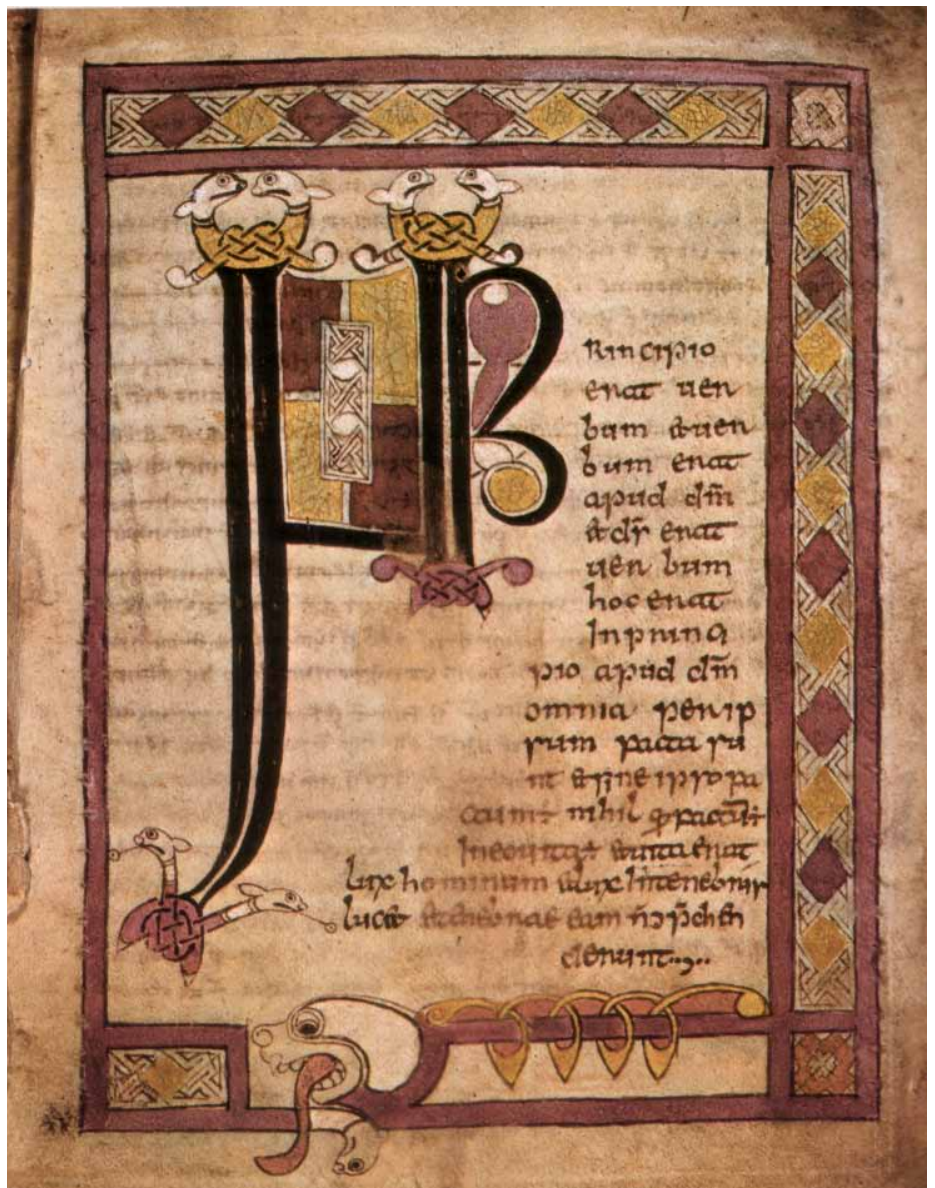 INP
Rincipio
erat uer
bum &uer
bum erat
apud dm̄
&ds̄ erat
uer bum
hoc erat
Inprinci
pio apud dm̄
omnia per ip
sum facta su
nt &sine ipso fa
ctum ÷ nihil ꝙ factū ÷
Ineo uita ÷ &uita erat
lux hominum &lux In tenebris
luc& &tenebrae eam n̄ ɔp̄chen
derunt..,..